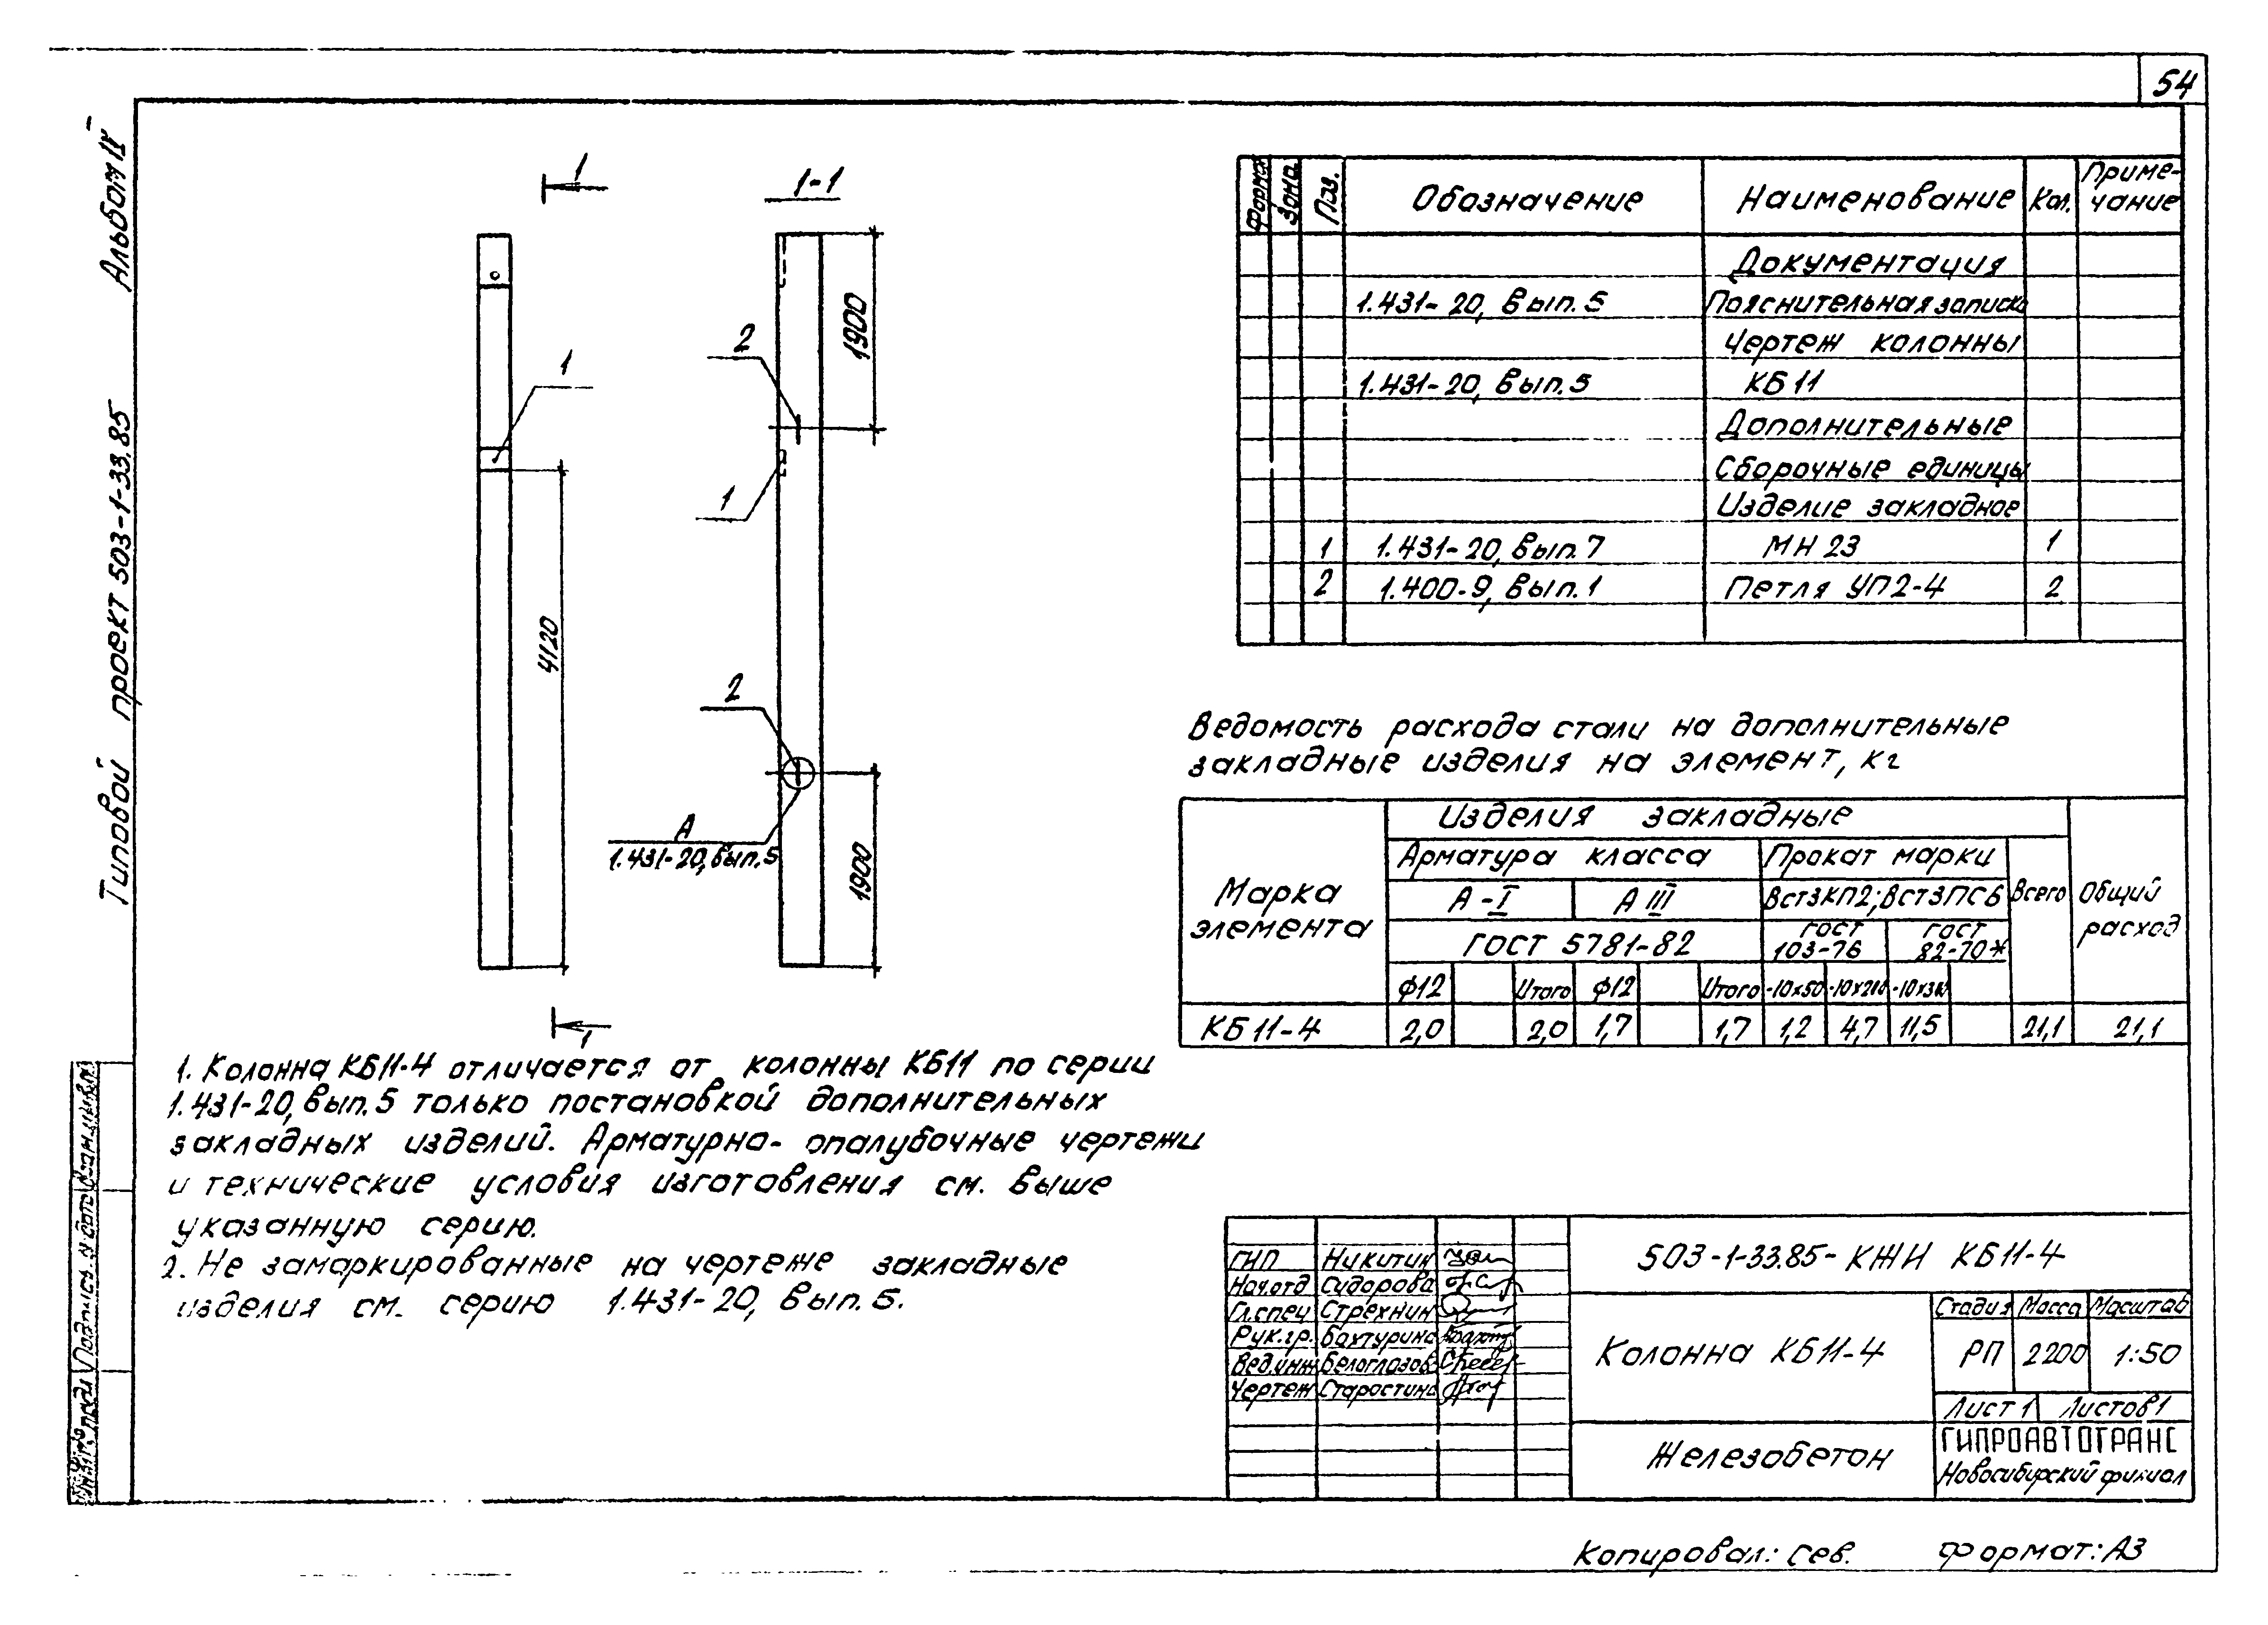 54
Альбом II
Типовой проект 503-1-33.85
1
1-1
1
2
1900
4120
1
2
А
1.431-20, вып.5
1900
1
Формат Зона Поз. Обозначение Наименование Кол. Приме-
чание
Документация
1.431-20, вып.5 Пояснительная записка
Чертеж колонны
1.431-20, вып.5 КБ11
Дополнительные
Сборочные единицы
Изделие закладное
1 1.431-20, вып.7 МН 23 1
2 1.400-9, вып.1 Петля УП2-4 2
Ведомость расхода стали на дополнительные
закладные изделия на элемент, кг
Марка
элемента
Изделия закладные
Арматура класса Прокат марки
А-I А III ВСт3КП2; ВСт3ПС6 Всего Общий
расход
ГОСТ 5781-82 ГОСТ
103-76 ГОСТ
82-70*
ф12 Итого ф12 Итого -10х50 -10х200
КБ11-4 2,0 2,0 1,7 1,7 1,2 4,7 11,5 21,1 21,1
1. Колонна КБ11-4 отличается от колонны КБ11 по серии
1.431-20, вып.5 только постановкой дополнительных
закладных изделий. Арматурно-опалубочные чертежи
и технические условия изготовления см. выше
указанную серию.
2. Не замаркированные на чертеже закладные
изделия см. серию 1.431-20, вып.5.
Инв.№ подл. Подпись и дата Взам.инв.№
ГИП Никитин
Нач.отд Сидорова
Гл.спец Стрехнин
Рук.гр. Бахтурина
Вед.инж Белоглазов
Чертеж Старостина
503-1-33.85-КЖИ КБ11-4
Колонна КБ11-4
Стадия Масса Масштаб
РП 2200 1:50
Лист 1 Листов 1
Железобетон
ГИПРОАВТОТРАНС
Новосибирский филиал
Копировал: Сев. Формат: А3